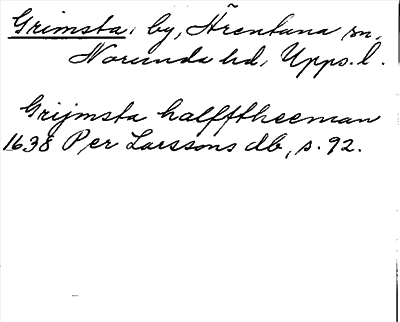 Grimsta, by, Ärentuna sn,
Norunda hd, Upps. l.
Grijmsta halfftheeman
1638 Per Larssons db, s. 92.